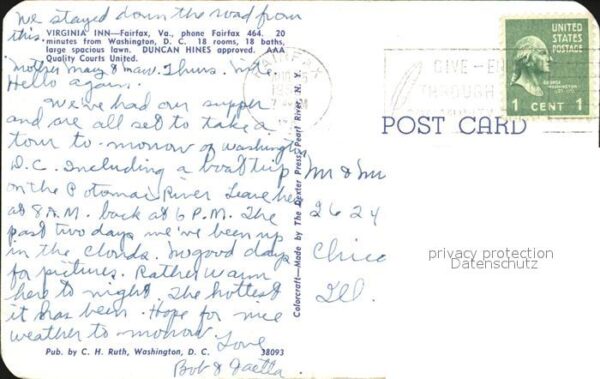 We stayed down the road from
this.
VIRGINIA INN—Fairfax, Va., phone Fairfax 464. 20
minutes from Washington, D. C. 18 rooms, 18 baths,
large spacious lawn. DUNCAN HINES approved. AAA
Quality Courts United.
Mother May & Maw. Thurs. Nite
Hello again.
We've had our supper
and are all set to take a
tour to-morrow of Washington
D.C. Including a boat trip
on the Potomac River Leave here
at 8 A.M. back at 6 P.M. The
past two days we've been up
in the clouds. No good days
for pictures. Rather warm
here to night. The hottest
it has been. Hope for nice
weather to morrow.
Love
Bob &
Pub. by C. H. Ruth, Washington, D. C. 38093
Colorcraft—Made by The Dexter Press, Pearl River, N. Y.
FAIRFAX
GIVE
THROUGH
UNITED
STATES
POSTAGE
GEORGE
WASHINGTON
1 CENT 1
POST CARD
Mr & Mr
2624
Chic
Ill.
privacy protection
Datenschutz